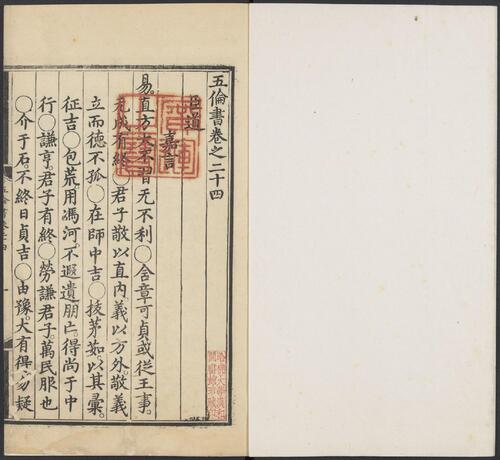 五倫書卷之二十四
臣道
嘉言
易。直方大。不習无不利〇含章可貞。或從王事。
无成有終〇君子敬以直内。義以方外。敬義
立而德不孤〇在師中吉〇拔茅茹。以其彙。
征吉〇包荒。用馮河。不遐遺。朋亡。得尚于中
行〇謙亨。君子有終〇勞謙君子。萬民服也
〇介于石。不終日。貞吉〇由豫。大有得。勿疑